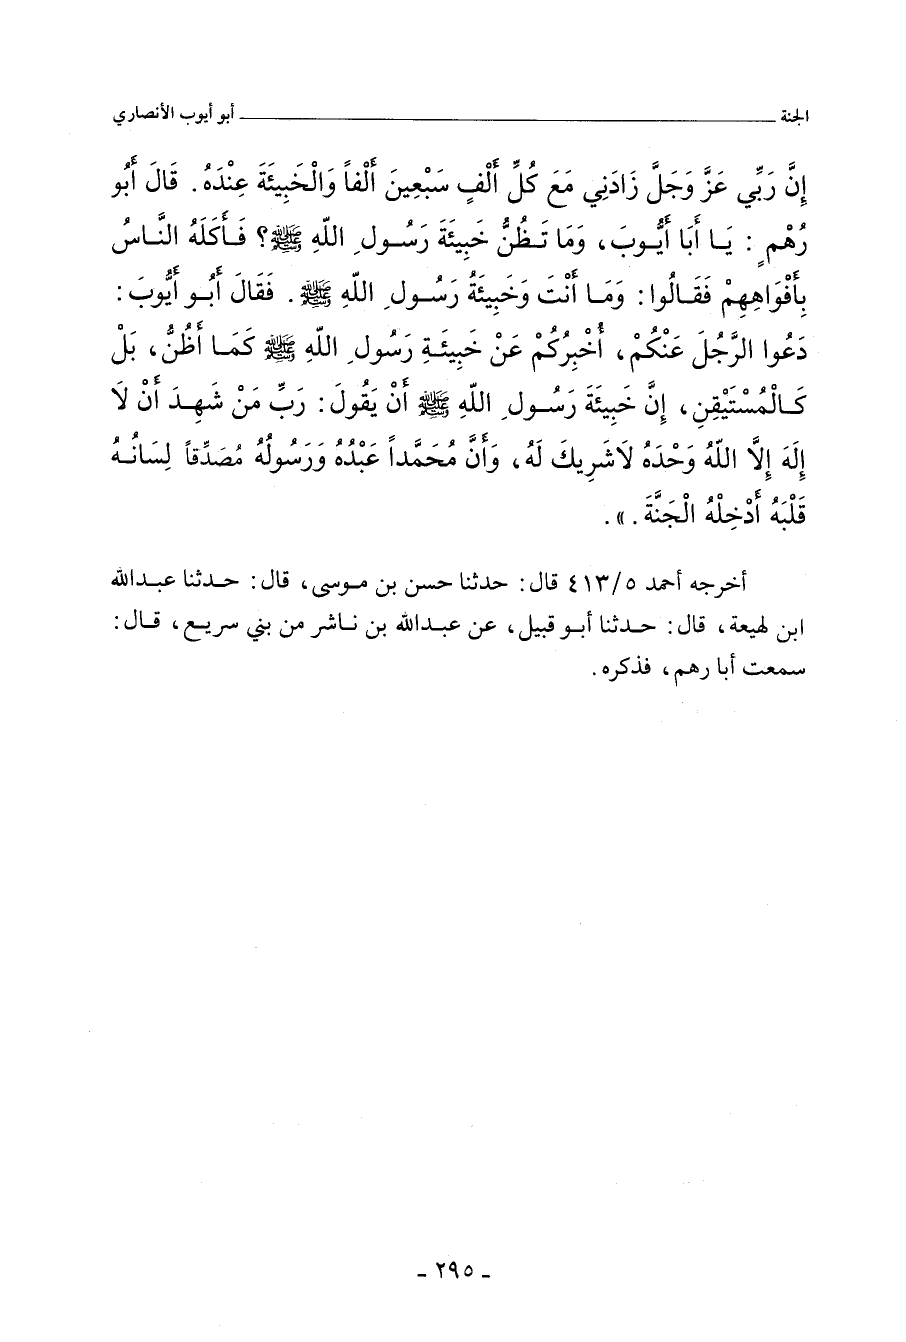 الجنة ــــــــــــــــ أبو أيوب الأنصاري
إِنَّ رَبِّي عَزَّ وَجَلَّ زَادَنِي مَعَ كُلِّ أَلْفٍ سَبْعِينَ أَلْفاً وَالْخَبِيئَةَ عِنْدَهُ. قَالَ أَبُو
رُهْمٍ : يَا أَبَا أَيُّوبَ، وَمَا تَظُنُّ خَبِيئَةَ رَسُولِ اللّهِ ﷺ؟ فَأَكَلَهُ النَّاسُ
بِأَفْوَاهِهِمْ فَقَالُوا: وَمَا أَنْتَ وَخَبِيئَةُ رَسُولِ اللّهِ ﷺ. فَقَالَ أَبُو أَيُّوبَ:
دَعُوا الرَّجُلَ عَنْكُمْ، أُخْبِرُكُمْ عَنْ خَبِيئَةِ رَسُولِ اللّهِ ﷺ كَمَا أَظُنُّ، بَلْ
كَالْمُسْتَيْقِنِ، إِنَّ خَبِيئَةَ رَسُولِ اللّهِ ﷺ أَنْ يَقُولَ: رَبِّ مَنْ شَهِدَ أَنْ لَا
إِلَهَ إِلَّا اللّهُ وَحْدَهُ لَاشَرِيكَ لَهُ، وَأَنَّ مُحَمَّداً عَبْدُهُ وَرَسُولُهُ مُصَدِّقاً لِسَانُهُ
قَلْبَهُ أَدْخِلْهُ الْجَنَّةَ.».
أخرجه أحمد ٤١٣/٥ قال: حدثنا حسن بن موسى، قال: حدثنا عبدالله
ابن لهيعة، قال: حدثنا أبو قبيل، عن عبدالله بن ناشر من بني سريع، قال:
سمعت أبا رهم، فذكره.
ـ ٢٩٥ ـ